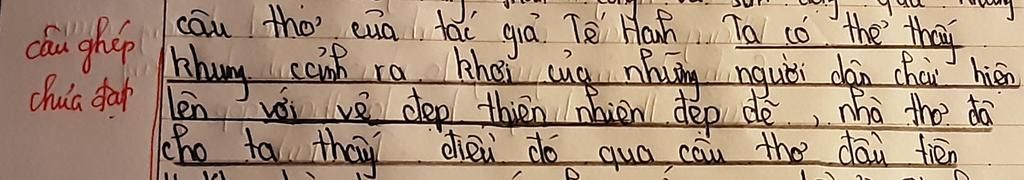 câu ghép
chứa đạt
câu thơ của tác giả Tế Hanh. Ta có thể thấy
khung cảnh ra khơi của những người dân chài hiện
lên với vẻ đẹp thiên nhiên đẹp đẽ, nhà thơ đã
cho ta thấy điều đó qua câu thơ đầu tiên